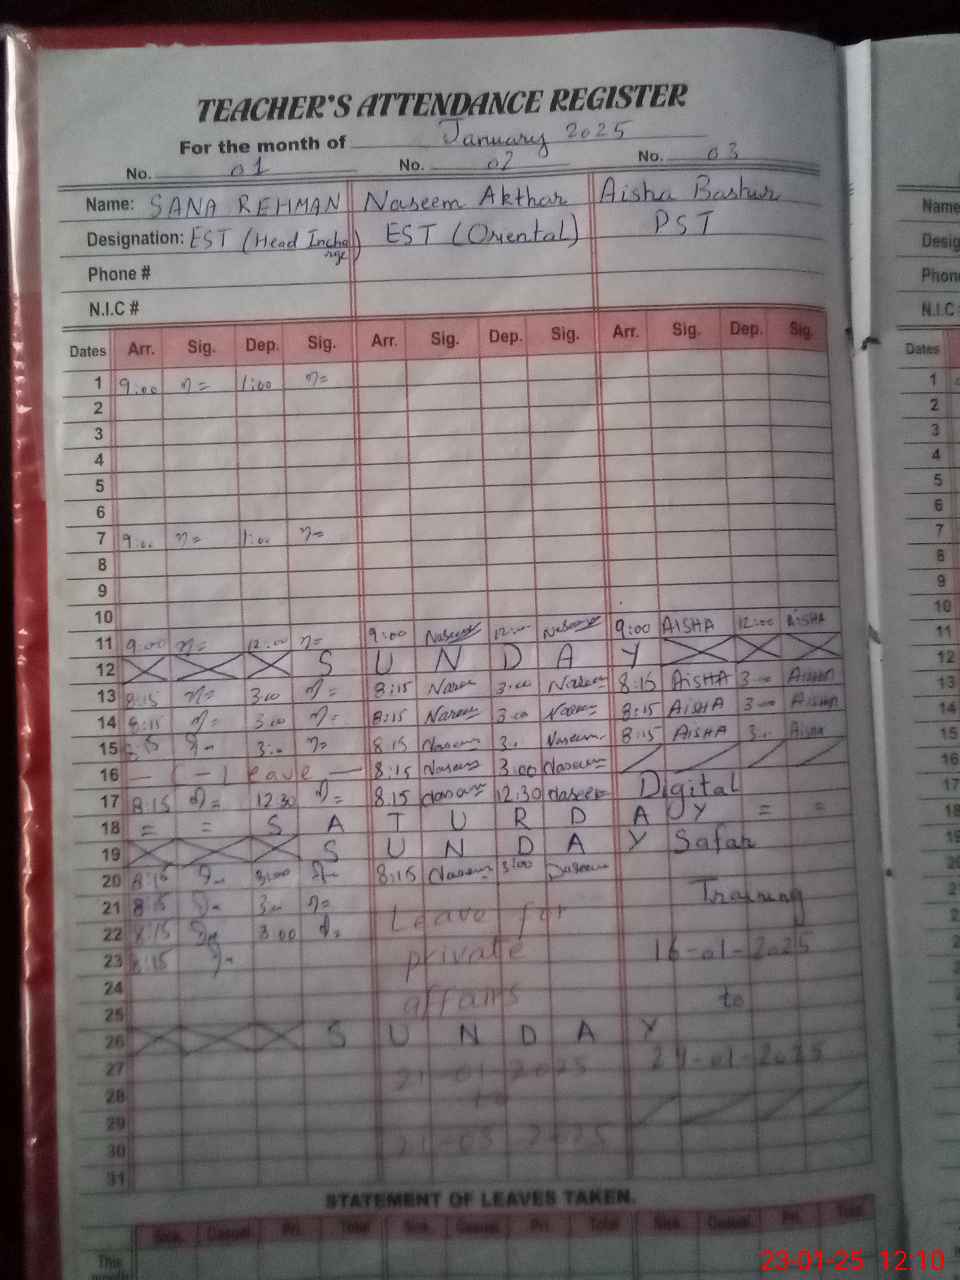 TEACHER'S ATTENDANCE REGISTER
For the month of January 2025
No. 01 No. 02 No. 03
Name: SANA REHMAN Naseem Akthar Aisha Bashir
Designation: EST (Head Incharge) EST (Oriental) PST
Phone #
N.I.C #
Dates Arr. Sig. Dep. Sig. Arr. Sig. Dep. Sig. Arr. Sig. Dep. Sig.
1 9:00 1:00
2
3
4
5
6
7 9:00 1:00
8
9
10
11 9:00 12:00 9:00 Naseem 12:00 Naseem 9:00 AISHA 12:00 AISHA
12 S U N D A Y
13 8:15 3:00 8:15 Naseem 3:00 Naseem 8:15 AISHA 3:00 AISHA
14 8:15 3:00 8:15 Naseem 3:00 Naseem 8:15 AISHA 3:00 AISHA
15 8:15 3:00 8:15 Naseem 3:00 Naseem 8:15 AISHA 3:00 Aisha
16 Leave 8:15 Naseem 3:00 Naseem
17 8:15 12:30 8:15 Naseem 12:30 Naseem Digital
18 = = S A T U R D A Y = =
19 S U N D A Y Safar
20 8:15 3:00 8:15 Naseem 3:00 Naseem
21 8:15 3:00 Leave for Training
22 8:15 3:00
23 8:15 private 16-01-2025
24 affairs to
25
26 S U N D A Y
27 21-01-2025 24-01-2025
28 to
29
30 21-03-2025
31
STATEMENT OF LEAVES TAKEN.
Sick. Casual Pri. Total Sick. Casual Pri. Total Sick. Casual Pri. Total
This
Name
Desig
Phon
N.I.C
Dates
1
2
3
4
5
6
7
8
9
10
11
12
13
14
15
16
17
18
19
23-01-25 12:10